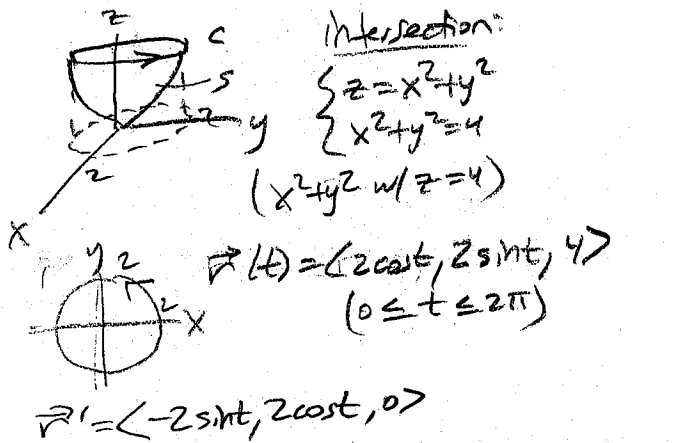 z
C
S
2
y
2
x
intersection:
{ z = x²+y²
{ x²+y²=4
(x²+y² w/ z=4)
y 2
2 x
r⃗(t) = <2cost, 2sint, 4>
(0 ≤ t ≤ 2π)
r⃗' = <-2sint, 2cost, 0>